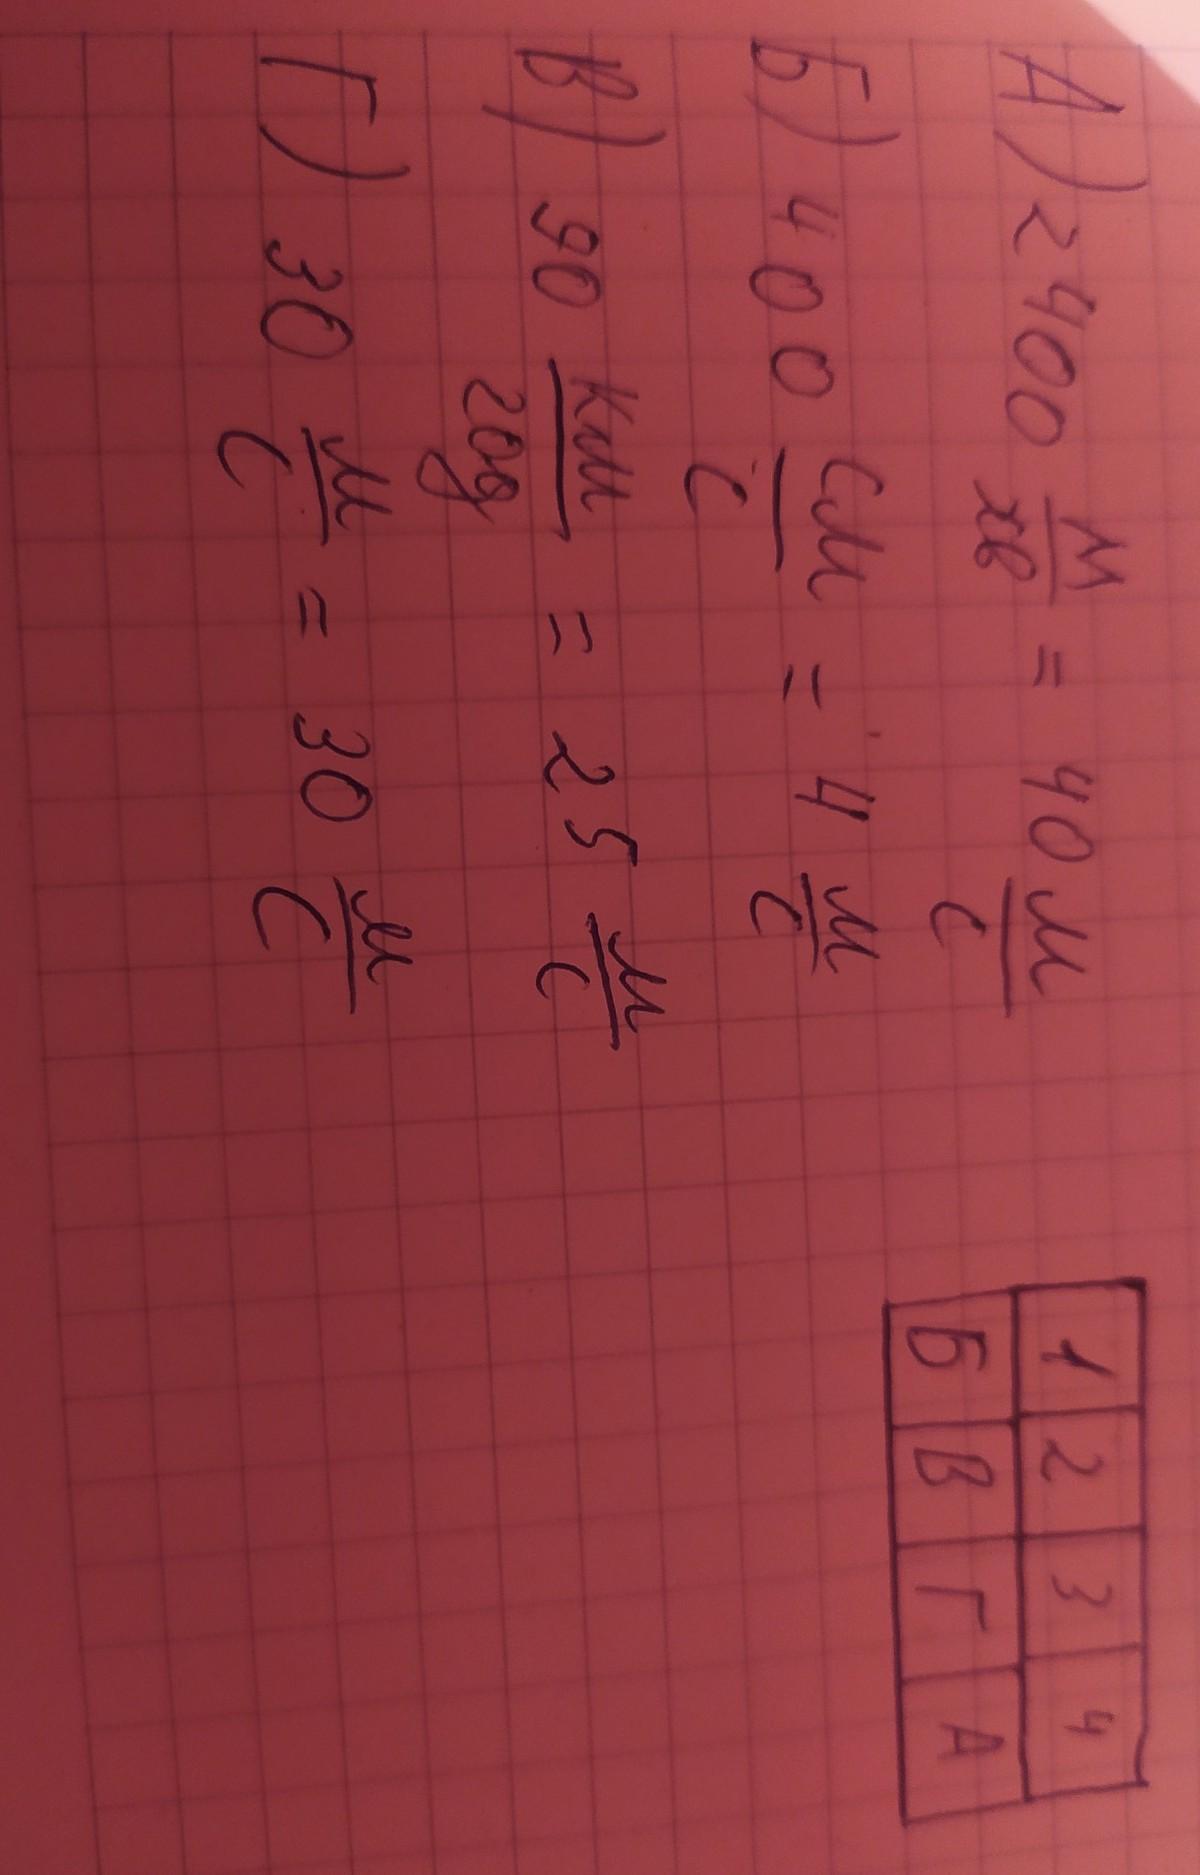 А) 2400 м/хв = 40 м/с
Б) 400 см/с = 4 м/с
В) 90 км/год = 25 м/с
Г) 30 м/с = 30 м/с
1 2 3 4
Б В Г А